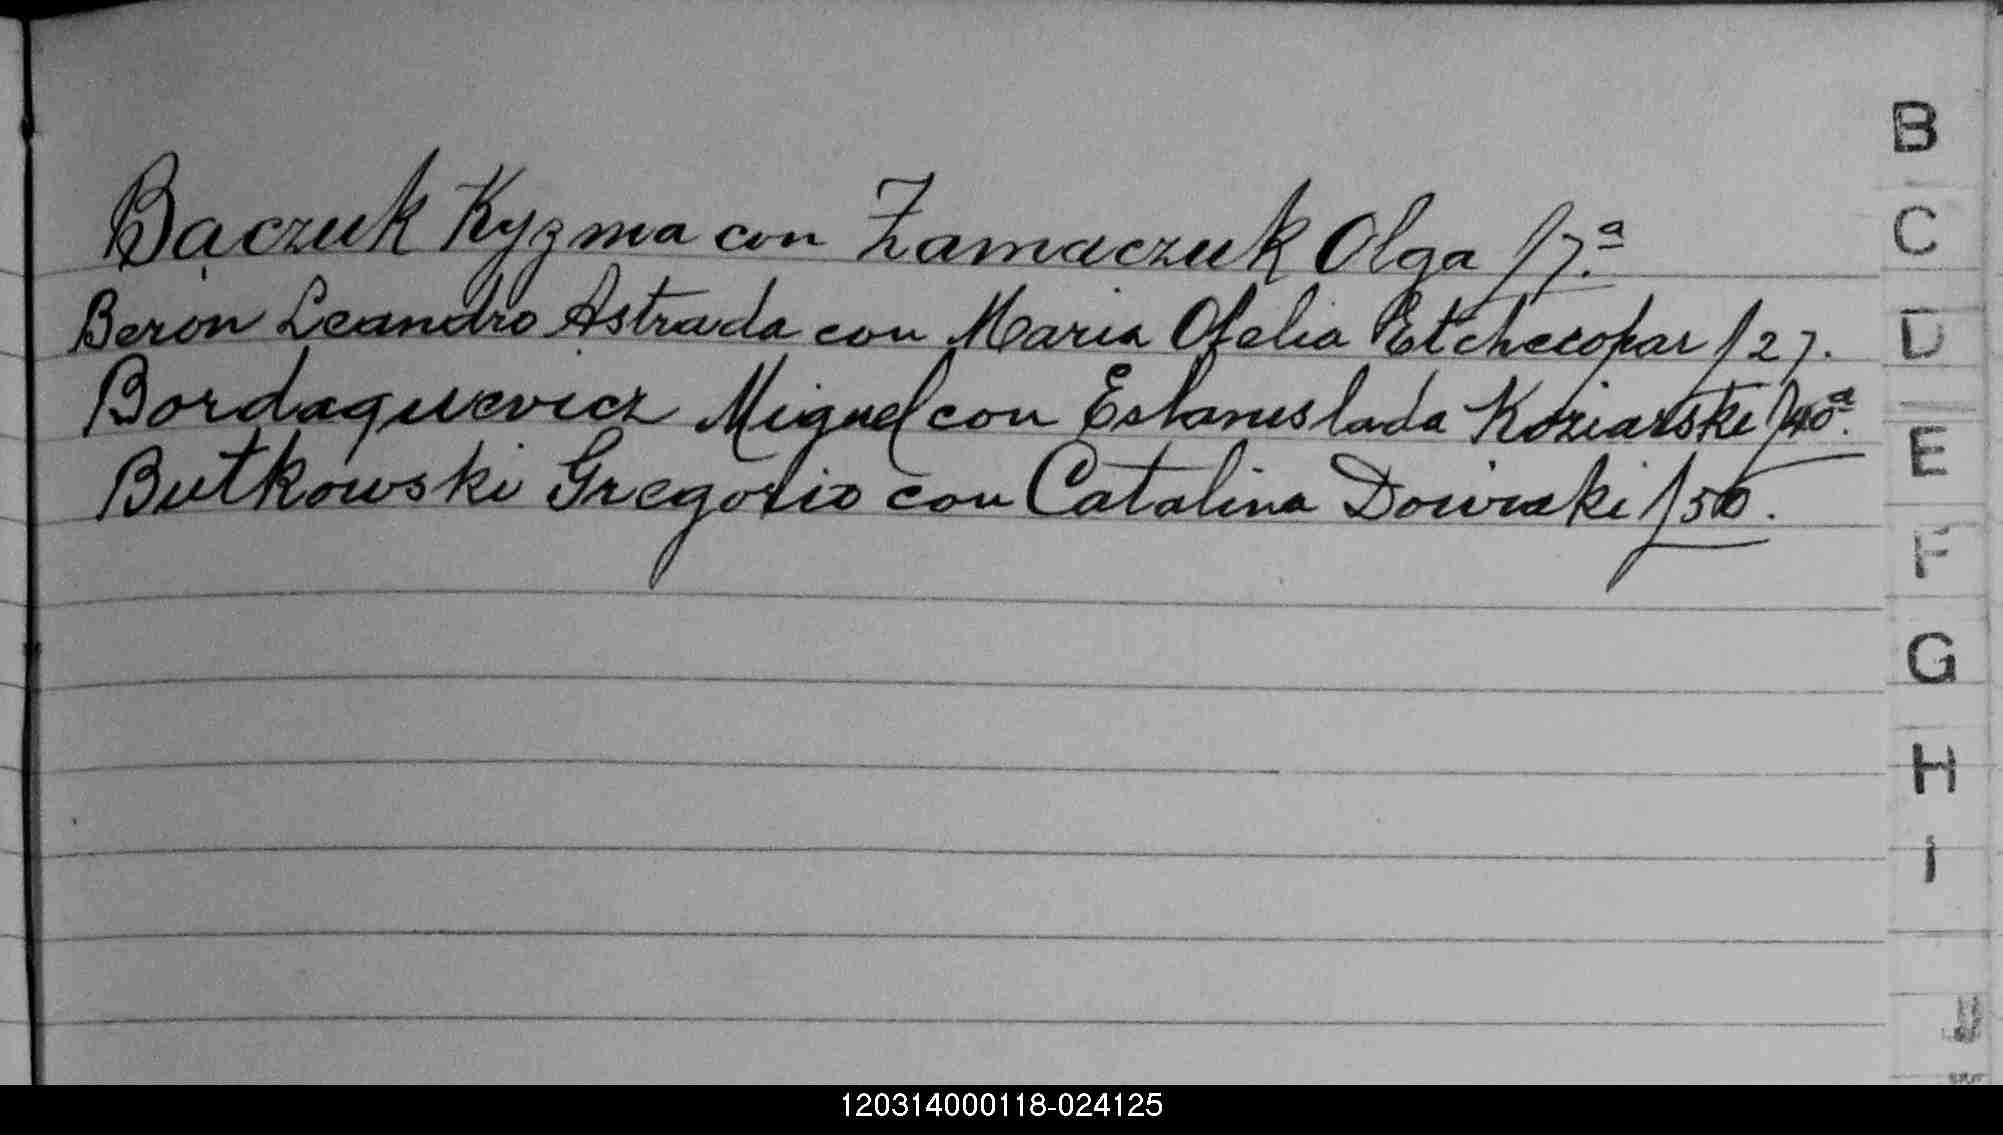 Baczuk Kyzma con Zamaczuk Olga f 7.ª
Beron Leandro Astrada con Maria Ofelia Etchecopar f 27.
Bordaquievicz Miguel con Estanislada Koziarski f 40ª.
Butkowski Gregorio con Catalina f 50.
B
C
D
E
F
G
H
I
J
120314000118-024125